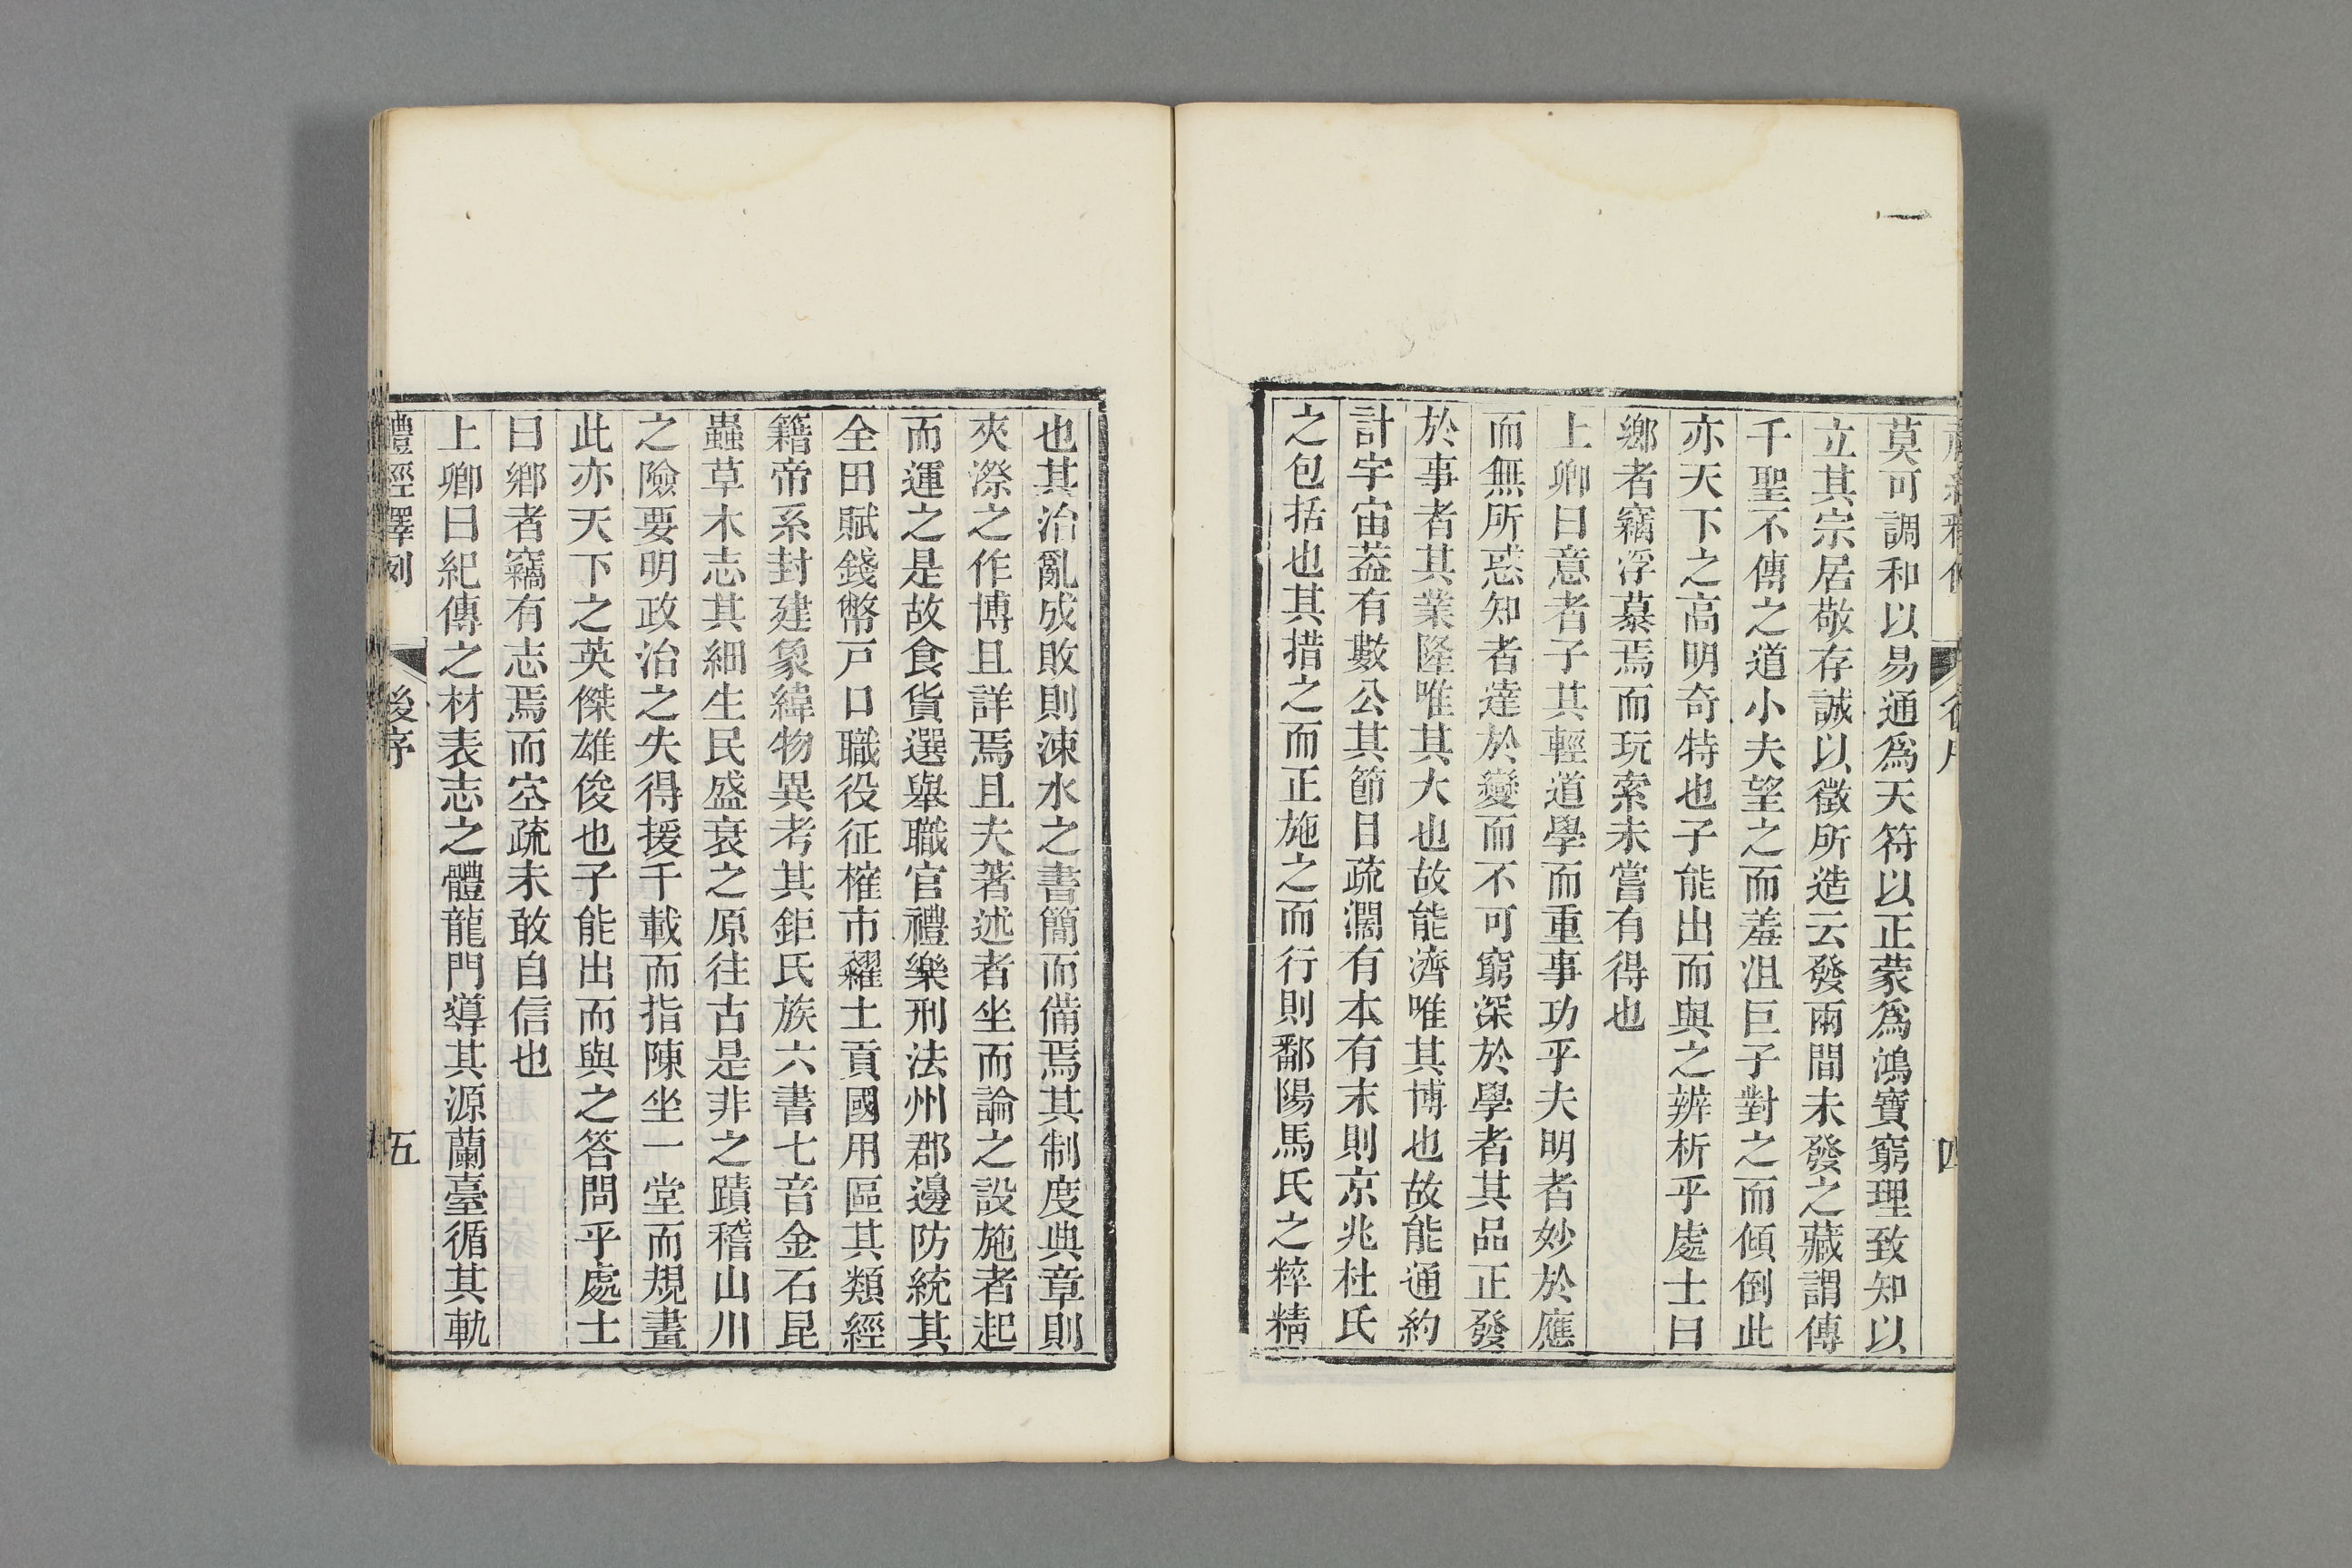 莫可調和以易通爲天符以正蒙爲鴻寶窮理致知以
立其宗居敬存誠以徵所造云發兩間未發之藏謂傳
千聖不傳之道小夫望之而羞沮巨子對之而傾倒此
亦天下之高明奇特也子能出而與之辨析乎處士曰
鄉者竊浮慕焉而玩索未嘗有得也
上卿曰意者子其輕道學而重事功乎夫明者妙於應
而無所惑知者達於變而不可窮深於學者其品正發
於事者其業隆唯其大也故能濟唯其博也故能通約
計宇宙葢有數公其節目疏濶有本有末則京兆杜氏
之包括也其措之而正施之而行則鄱陽馬氏之粹精
也其治亂成敗則涑水之書簡而備焉其制度典章則
夾漈之作博且詳焉且夫著述者坐而論之設施者起
而運之是故食貨選舉職官禮樂刑法州郡邊防統其
全田賦錢幣戸口職役征榷市糴土貢國用區其類經
籍帝系封建象緯物異考其鉅氏族六書七音金石昆
蟲草木志其細生民盛衰之原往古是非之蹟稽山川
之險要明政治之失得援千載而指陳坐一堂而規畫
此亦天下之英傑雄俊也子能出而與之答問乎處士
曰鄉者竊有志焉而空疏未敢自信也
上卿曰紀傳之材表志之體龍門導其源蘭臺循其軌
禮經釋例 後序 五